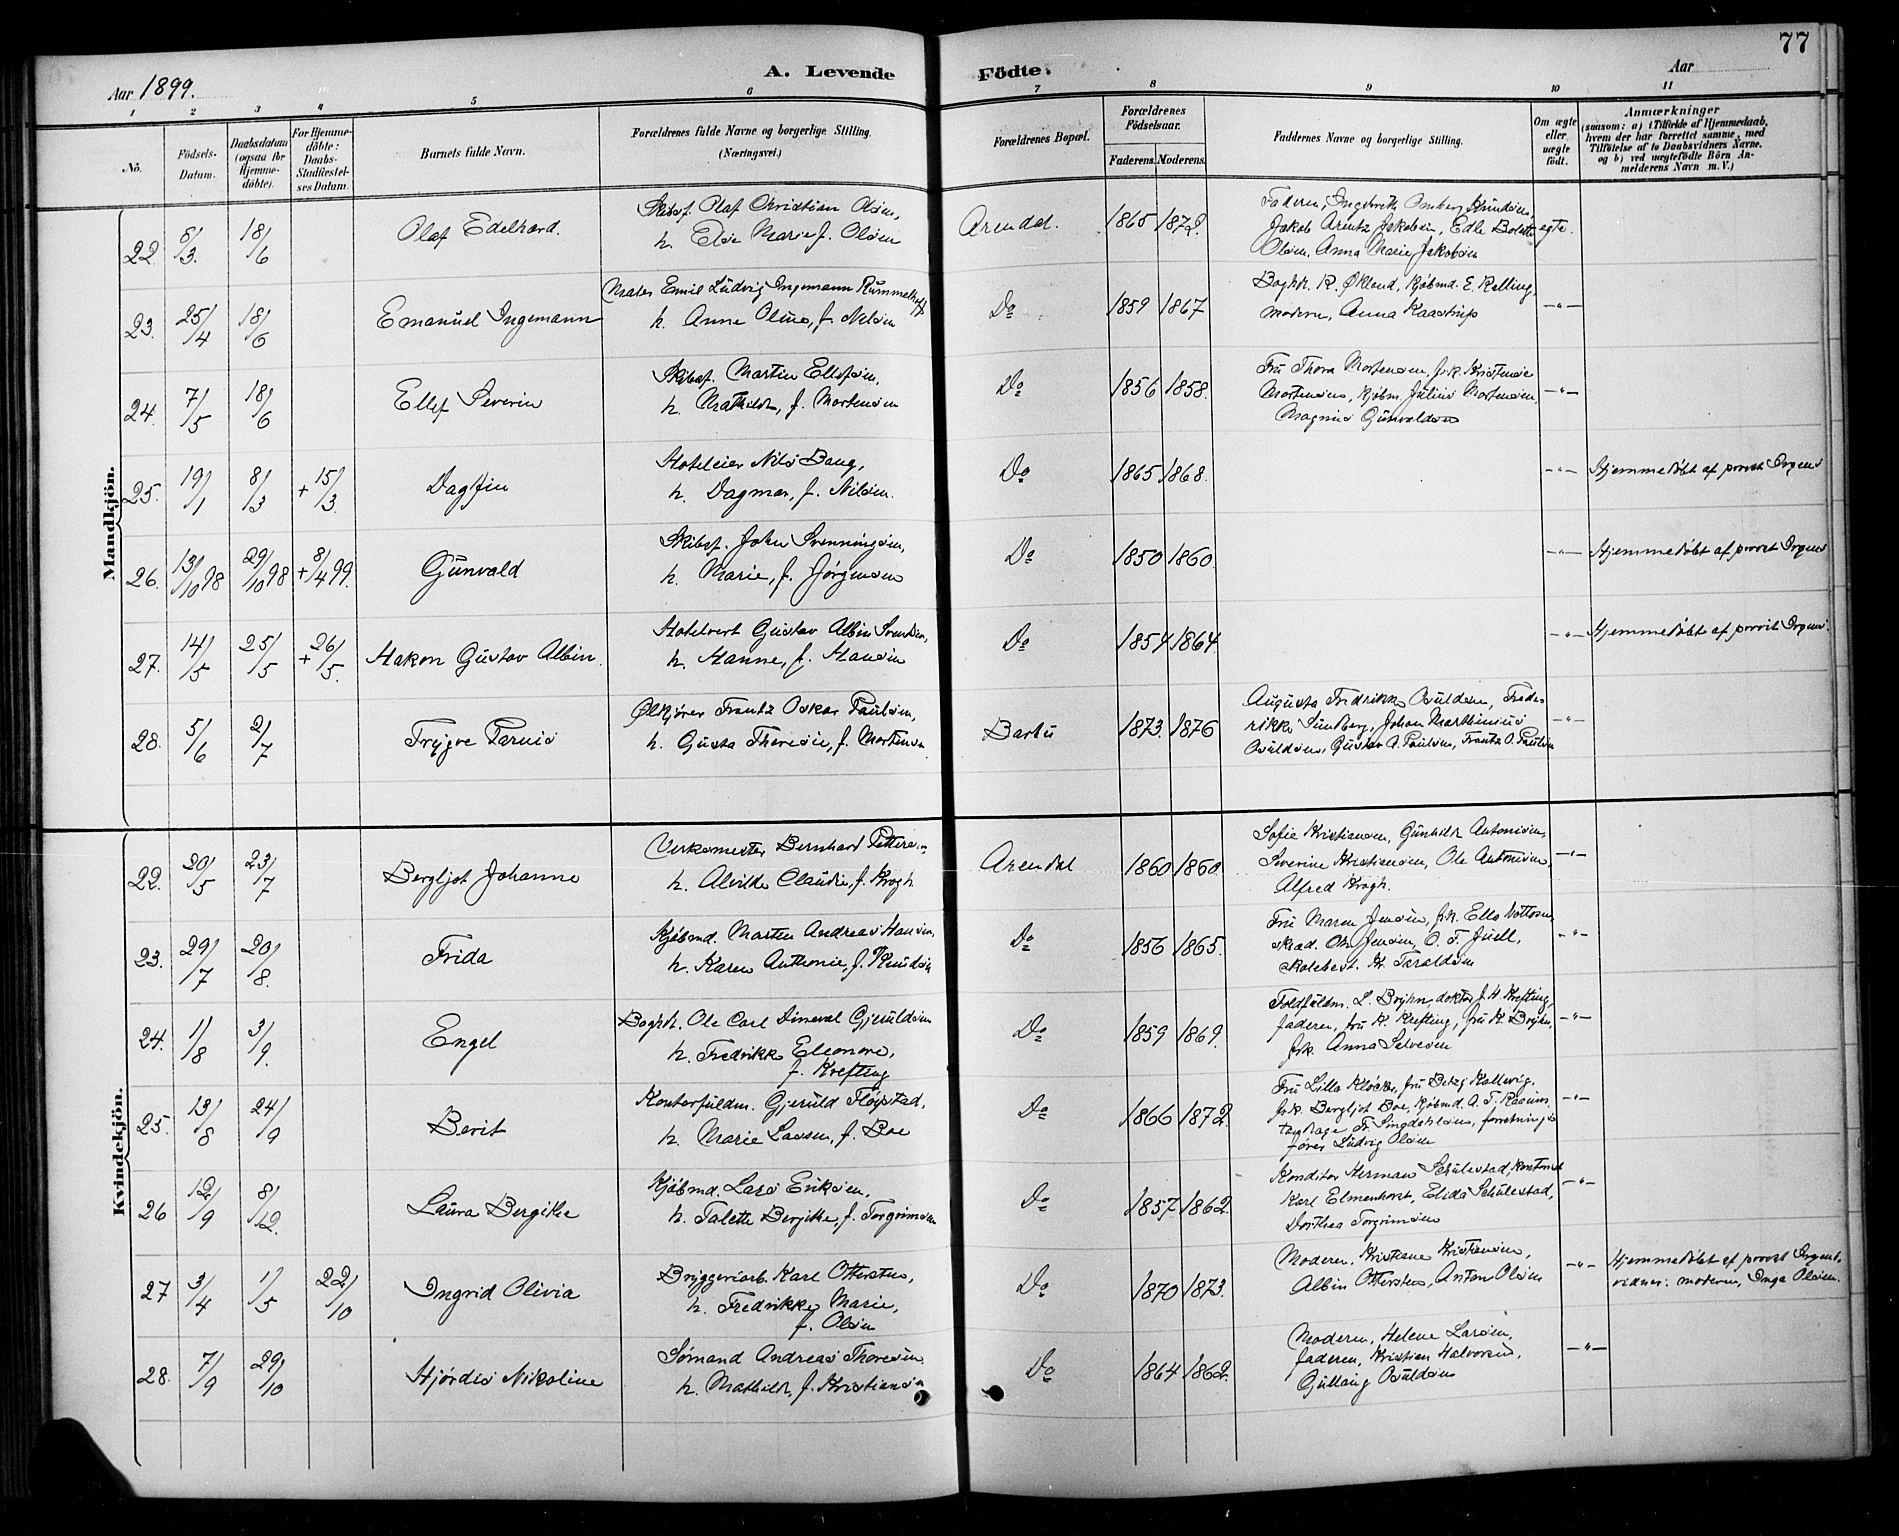 77
Aar 1899.
A. Levende Födte.
Aar
1 2 3 4 5 6 7 8 9 10 11
No.
Födsels-Datum.
Daabsdatum (ogsaa for Hjemmedöbte).
For Hjemmedöbte: Daabs-Stadfæstelses Datum.
Barnets fulde Navn.
Forældrenes fulde Navne og borgerlige Stilling.
(Næringsvei.)
Forældrenes Bopæl.
Forældrenes Födselsaar.
Faderens. Moderens.
Faddernes Navne og borgerlige Stilling.
Om ægte eller uægte født.
Anmærkninger
(saasom: a) i Tilfælde af Hjemmedaab, hvem der har forrettet samme, med Tilföielse af to Daabsvidners Navne, og b) ved uægtefödte Börn Anmelderens Navn m. V.)
Mandkjön.
22. 8/3. 18/6 Olaf Edelhard. Skibsf. Olaf Christian Olsen,
h. Else Marie f. Olsen
Arendal. 1865 1872. Faderen, Ingebreth Omberg Knudsen,
Jakob Arentz Jakobsen, Edle Bolette
Olsen, Anna Marie Jakobsen
egte.
23. 25/4 18/6 Emanuel Ingemann Maler Emil Ludvig Ingemann Rummelhoff
h. Anne Oline, f. Nilsen
Do 1859 1867 Boghdl. R. Økland, Kjøbmd. E. Relling,
moderen, Anna Kaastrup
-"-
24. 7/5 18/6 Ellef Severin Skibsf. Martin Ellefsen,
h. Mathilde, f. Mortensen
Do 1856 1858. Fru Thora Mortensen, frk. Kristense
Mortensen, Kjøbm. Julius Mortensen,
Magnus Gunvaldsen
-"-
25. 19/1 8/3 +15/3. Dagfin Hoteleier Nils Baug,
h. Dagmar, f. Nilsen.
Do 1865 1868. -"- Hjemmedøbt af provst Irgens
26. 13/10 98 29/10 98 +8/4 99. Gunvald Skibsf. John Svenningsen,
h. Marie, f. Jørgensen
Do 1850 1860. -"- Hjemmedøbt af provst Irgens
27. 14/5 25/5 +26/5. Hakon Gustav Albin. Hotelvert Gustav Albin Svendsen,
h. Hanne, f. Hansen
Do 1854 1864 -"- Hjemmedøbt af provst Irgens.
28. 5/6 2/7 Trygve Farnis Ølkjører Frantz Oskar Paulsen,
h. Gusta Theresie, f. Mortensen
Barbu 1873. 1876 Augusta Fredrikke Osuldsen, Frede-
rikke Sundberg, Johan Marthinius
Osuldsen, Gustav A. Paulsen, Frantz O. Paulsen
-"-
Kvindekjön.
22. 20/5 23/7 Bergljot Johanne Verksmester Bernhard Pettersen,
h. Alvilde Claudie, f. Krogh
Arendal 1860 1860. Sofie Kristiansen, Gunhild Antonisen,
Severine Kristiansen, Ole Antonisen,
Alfred Krogh.
-"-
23. 29/7 20/8. Frida Kjøbmd. Morten Andreas Hansen,
h. Karen Anthonie, f. Knudsen
Do 1856 1865. Fru Maren Jensen, frk. Ella
Jensen, O. T. Juell,
skolebest. Taraldsen
-"-
24. 1/8 3/9. Engel Boghdl. Ole Carl Gjeruldsen
h. Fredrikke Eleonore,
f. Krefting
Do 1859 1869. Toldfuldm. L. Bryhn, doktor J. H. Krefting,
faderen, fru K. Krefting, fru K. Bryhn,
frk. Anna Selvesen
-"-
25. 13/8 24/9 Berit Kontorfuldm. Gjeruld Fløystad,
h. Marie Lassen, f. Boe
Do 1866 1872. Fru Lilla Kløcker, fru Betzy Kallevig,
frk. Bergljot Boe, Kjøbmd. A. T. Raaum,
tandlæge Fr. Singdahlsen, forretnings
fører Ludvig Olsen
-"-
26 12/9 8/12. Laura Bergitte Kjøbmd. Lars Eriksen,
h. Talette Bergitte, f. Torgrimsen
Do 1857 1862. Konditor Herman Schulestad, kontorist
Karl Elmenhorst, Elida Schulestad,
Dorthea Torgrimsen
-"-
27 3/4 1/5 22/10 Ingrid Olivia Bryggeriarb. Karl Ottersten,
h. Fredrikke Marie,
f. Olsen
Do 1870 1873. Moderen, Kristiane Kristiansen,
Albin Ottersten, Anton Olsen
-"- Hjemmedøbt af provst Irgens.
vidner: moderen, Inga Olsen.
28. 7/9 29/10 Hjørdis Nikoline Sømand Andreas Thoresen
h. Mathilde, f. Kristiansen
Do 1864 1862. Moderen, Helene Larsen,
faderen, Kristian Halvorsen,
Gullaug Osuldsen
-"-